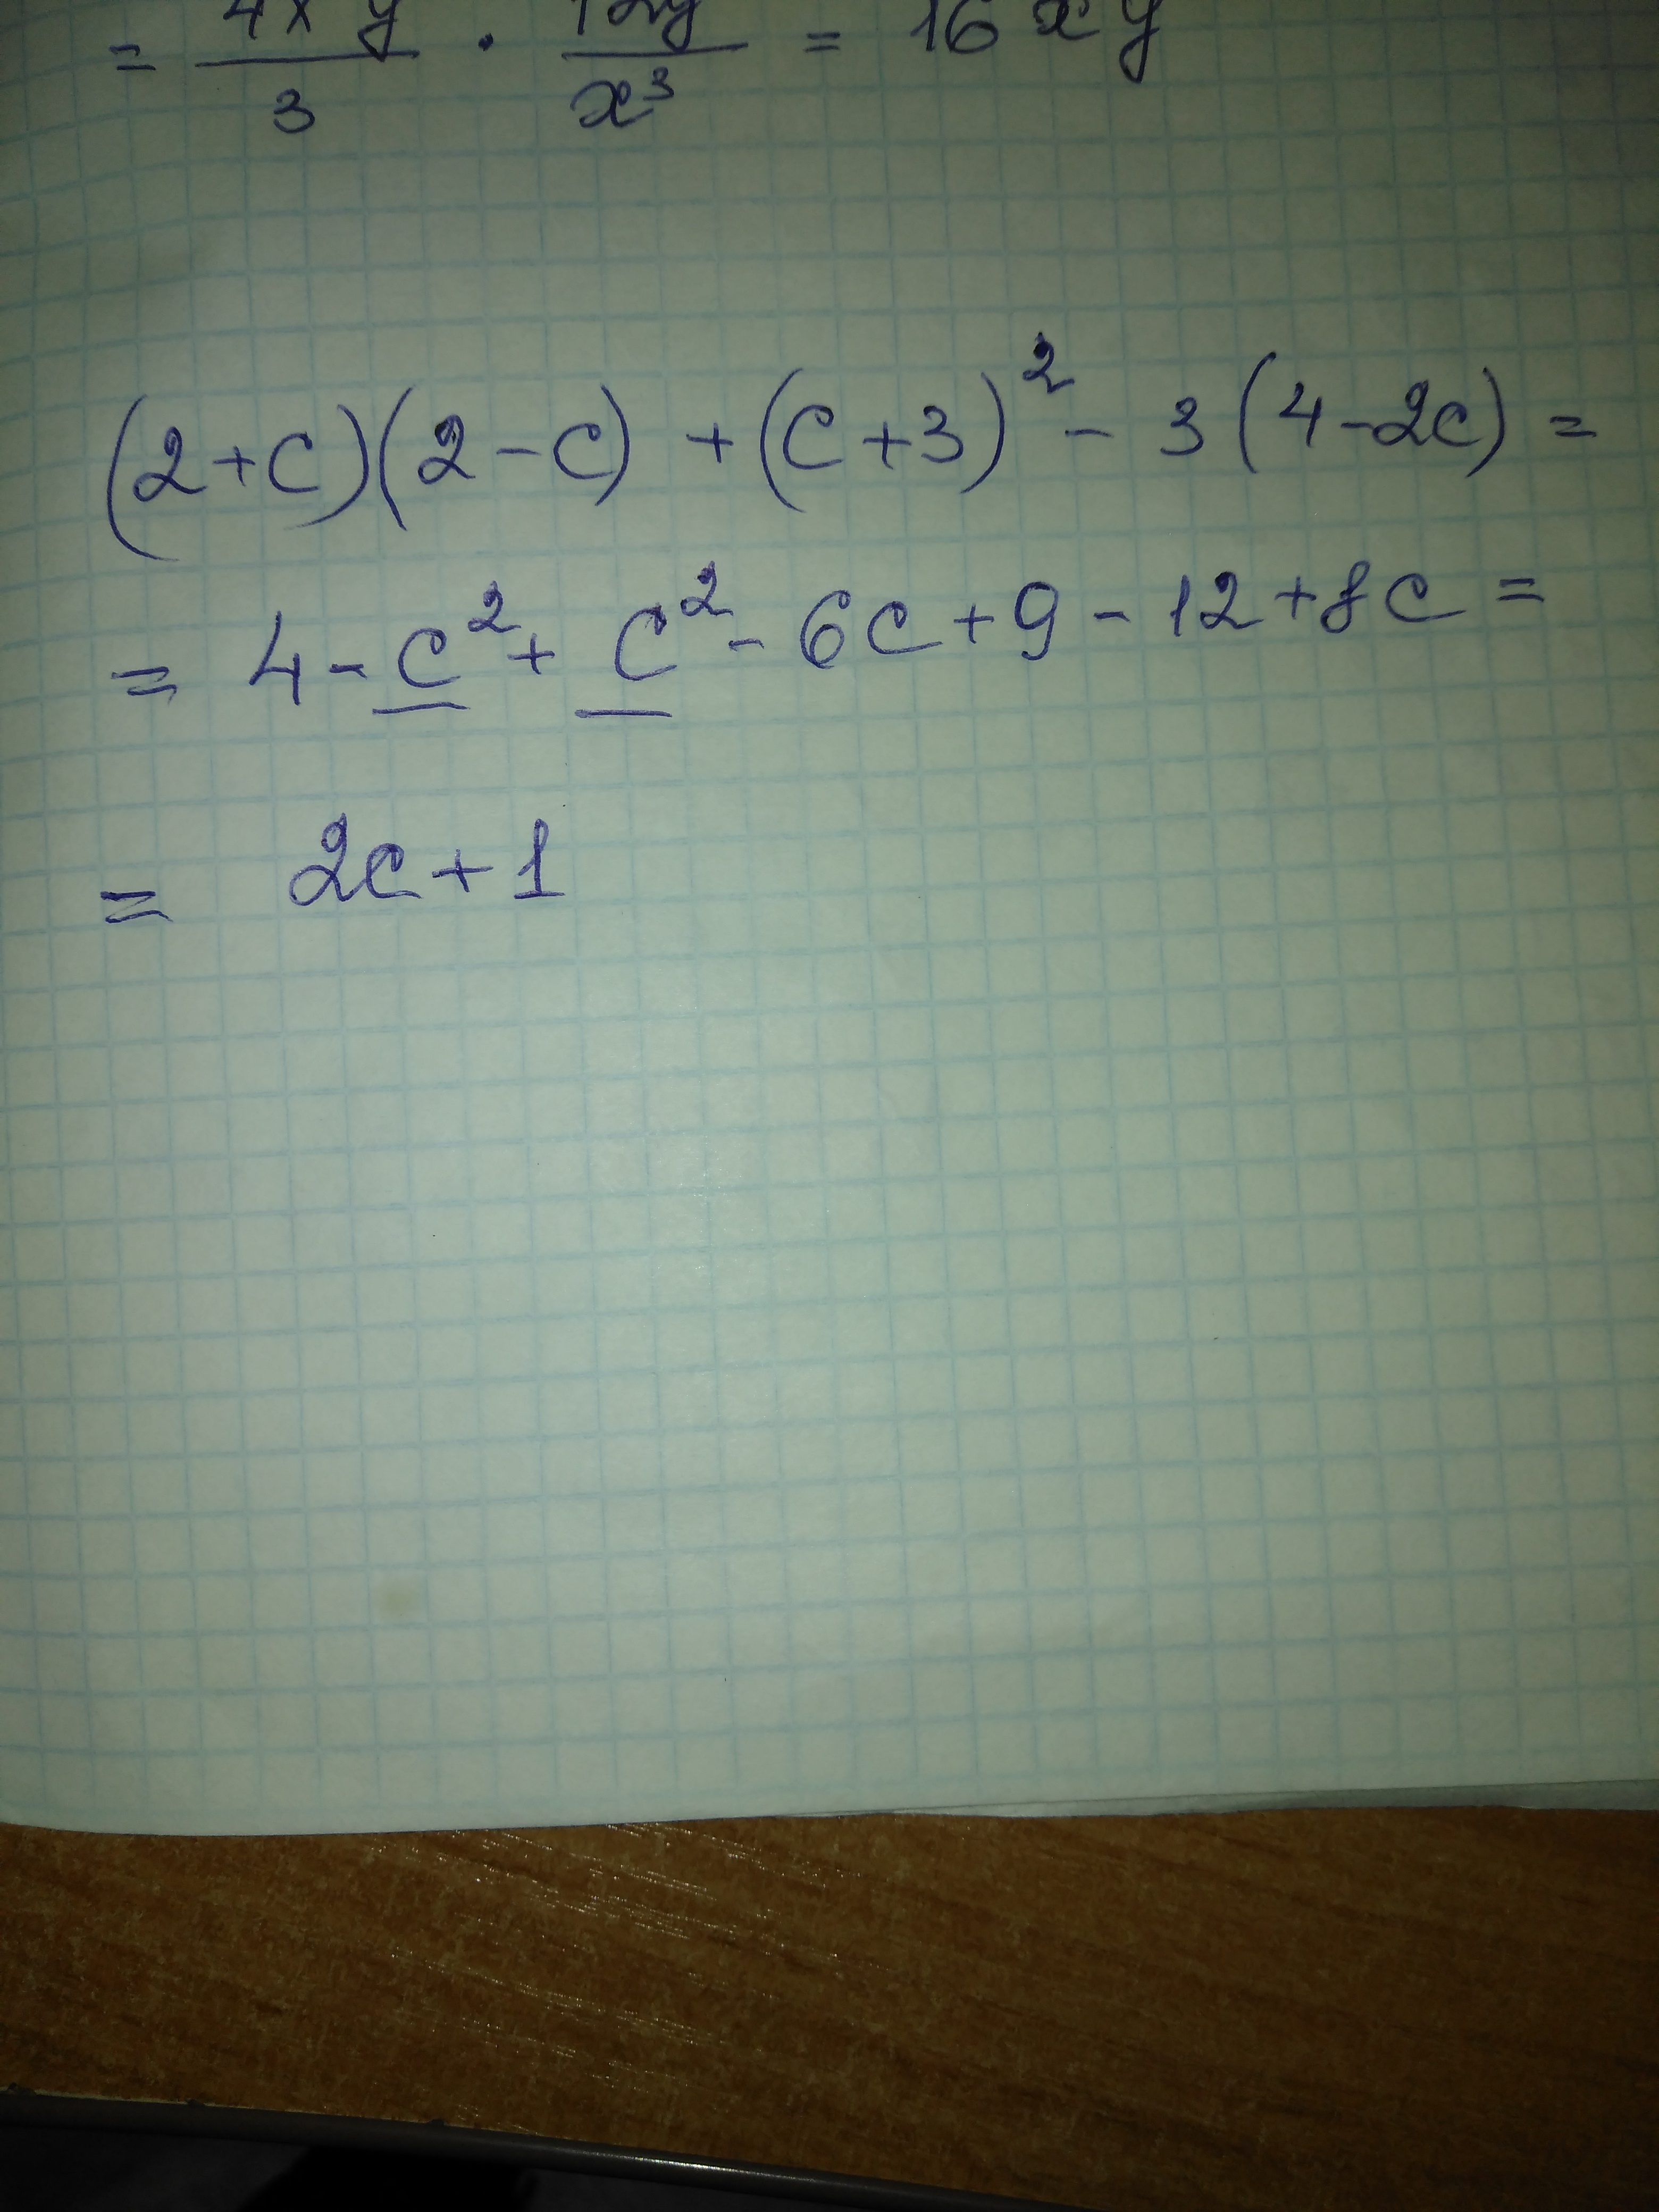 = 4x y / 3 · 12y / x³ = 16 x y
(2+c)(2-c) + (c+3)² - 3(4-2c) =
= 4 - c² + c² - 6c + 9 - 12 + 8c =
= 2c + 1